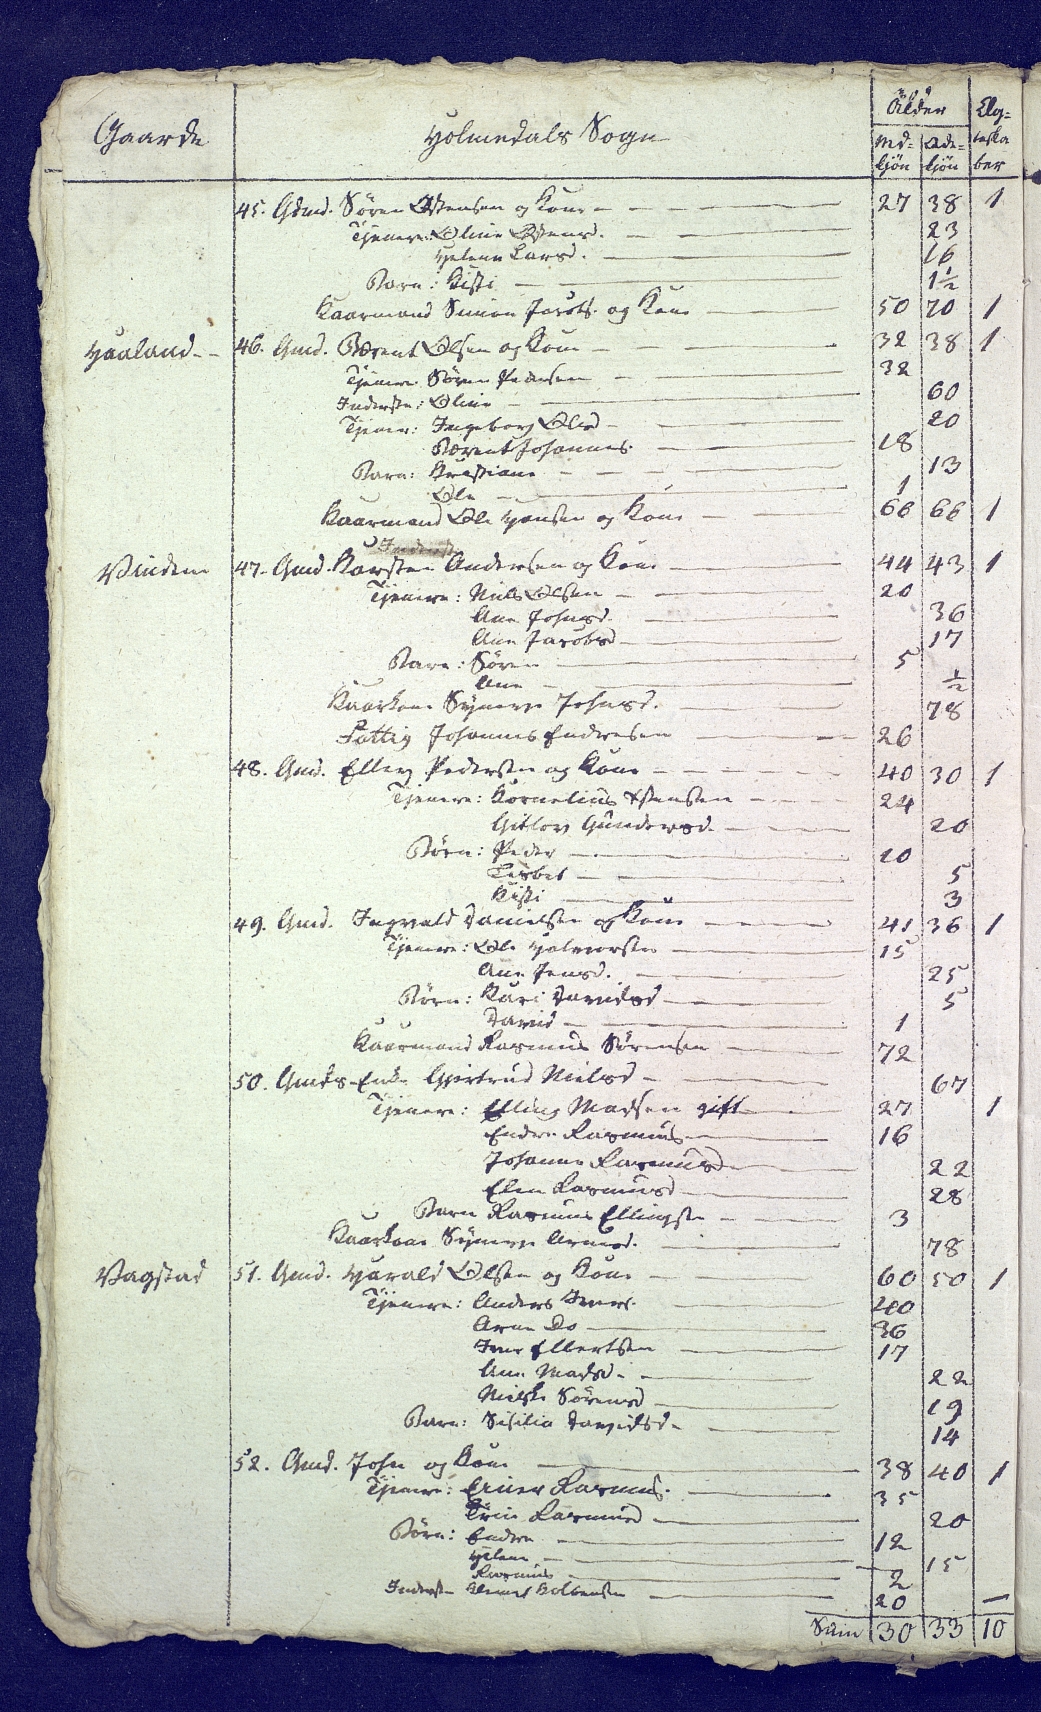 Gaarde Holmedals Sogn Alder Ægteskaber
Md=kjön Qde=kjön
45. Gdmd. Sören Østensen og Kone 27 38 1
Tjenere: Oline Østensd. 23
Helene Larsd. 16
Barn: Kisti 1½
Kaarmand Simon Jacobs. og Kone 50 70 1
Haaland 46. Gmd. Bærent Olsen og Kone 32 38 1
Tjenere Sören Pedersen 32
Inderste: Oline 60
Tjener: Ingeborg Olsd 20
Bærent Johannes. 18
Barn: Kristiane 13
Ole 1
Kaarmand Ole Hansen og Kone 66 66 1
Vinden 47. Gmd. Karsten Andersen og Kone 44 43 1
Tjenere: Niels Olsen 20
Ane Johnsd. 36
Ane Jacobsd 17
Barn: Sören 5
Ane ½
Kaarkone Synneve Johnsd. 78
Fattig Johannes Endresen 26
48. Gmd. Elling Pedersen og Kone 40 30 1
Tjenere: Kornelius Østensen 24
Gitlov Gundersd. 20
Börn: Peder 10
Lisbet 5
Kisti 3
49. Gmd. Ingvald Danielsen og Kone 41 36 1
Tjenere: Ole Halvorsen 15
Ane Jensd. 25
Börn: Kari Davidsd 5
David 1
Kaarmand Rasmus Sörensen 72
50. Gmds-Enke Gjertrud Nielsd 67
Tjenere: Elling Madsen gift 27 1
Endre Rasmus. 16
Johanne Rasmusd 22
Elen Rasmusd 28
Barn Rasmus Ellingsen 3
Kaarkone Synneve Arnesd. 78
Vagstad 51. Gmd. Harald Olsen og Kone 60 50 1
Tjenere: Anders Ivers. 40
Arne Do 36
Iver Ellertsen 17
Ane Madsd. 22
Nielske Sörensd 19
Barn: Sisilia Davidsd. 14
52. Gmd. John og Kone 38 40 1
Tjenere: Einer Rasmus. 35
Trine Rasmusd 20
Börn: Endre 12
Helene 15
Rasmus 2
Inderste 20
Sum 30 33 10